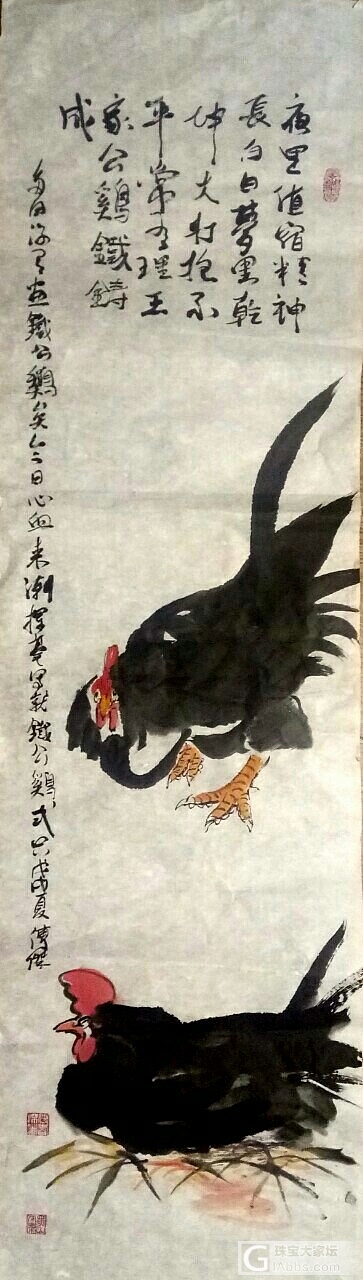 夜里值宿精神
長白日夢里乾
坤大打抱不
平常有理王
家公鷄鐵鑄
成
多日没有画鐵公鷄矣今日心血来潮揮毫寫就鐵公鷄弍只戊戌夏傳傑
珠宝大家坛